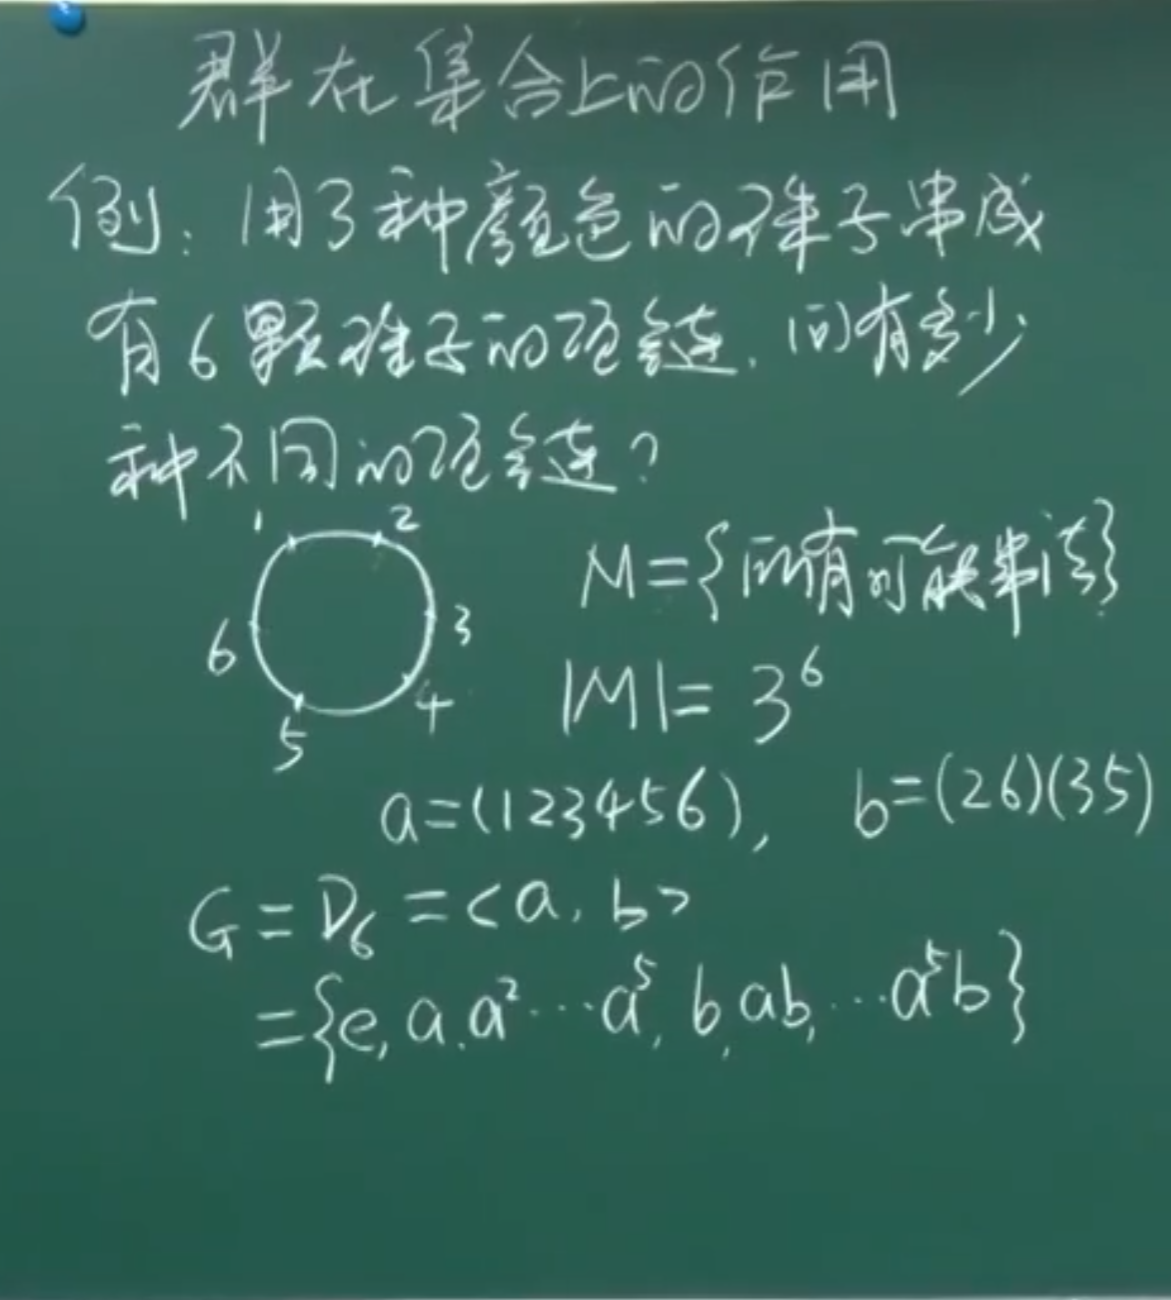 群在集合上的作用
例：用3种颜色的珠子串成
有6颗珠子的项链，问有多少
种不同的项链？
1 2
6 3
5 4
M={所有可能串法}
|M|=3⁶
a=(123456), b=(26)(35)
G=D₆=<a, b>
={e, a, a²⋯a⁵, b, ab, ⋯a⁵b}